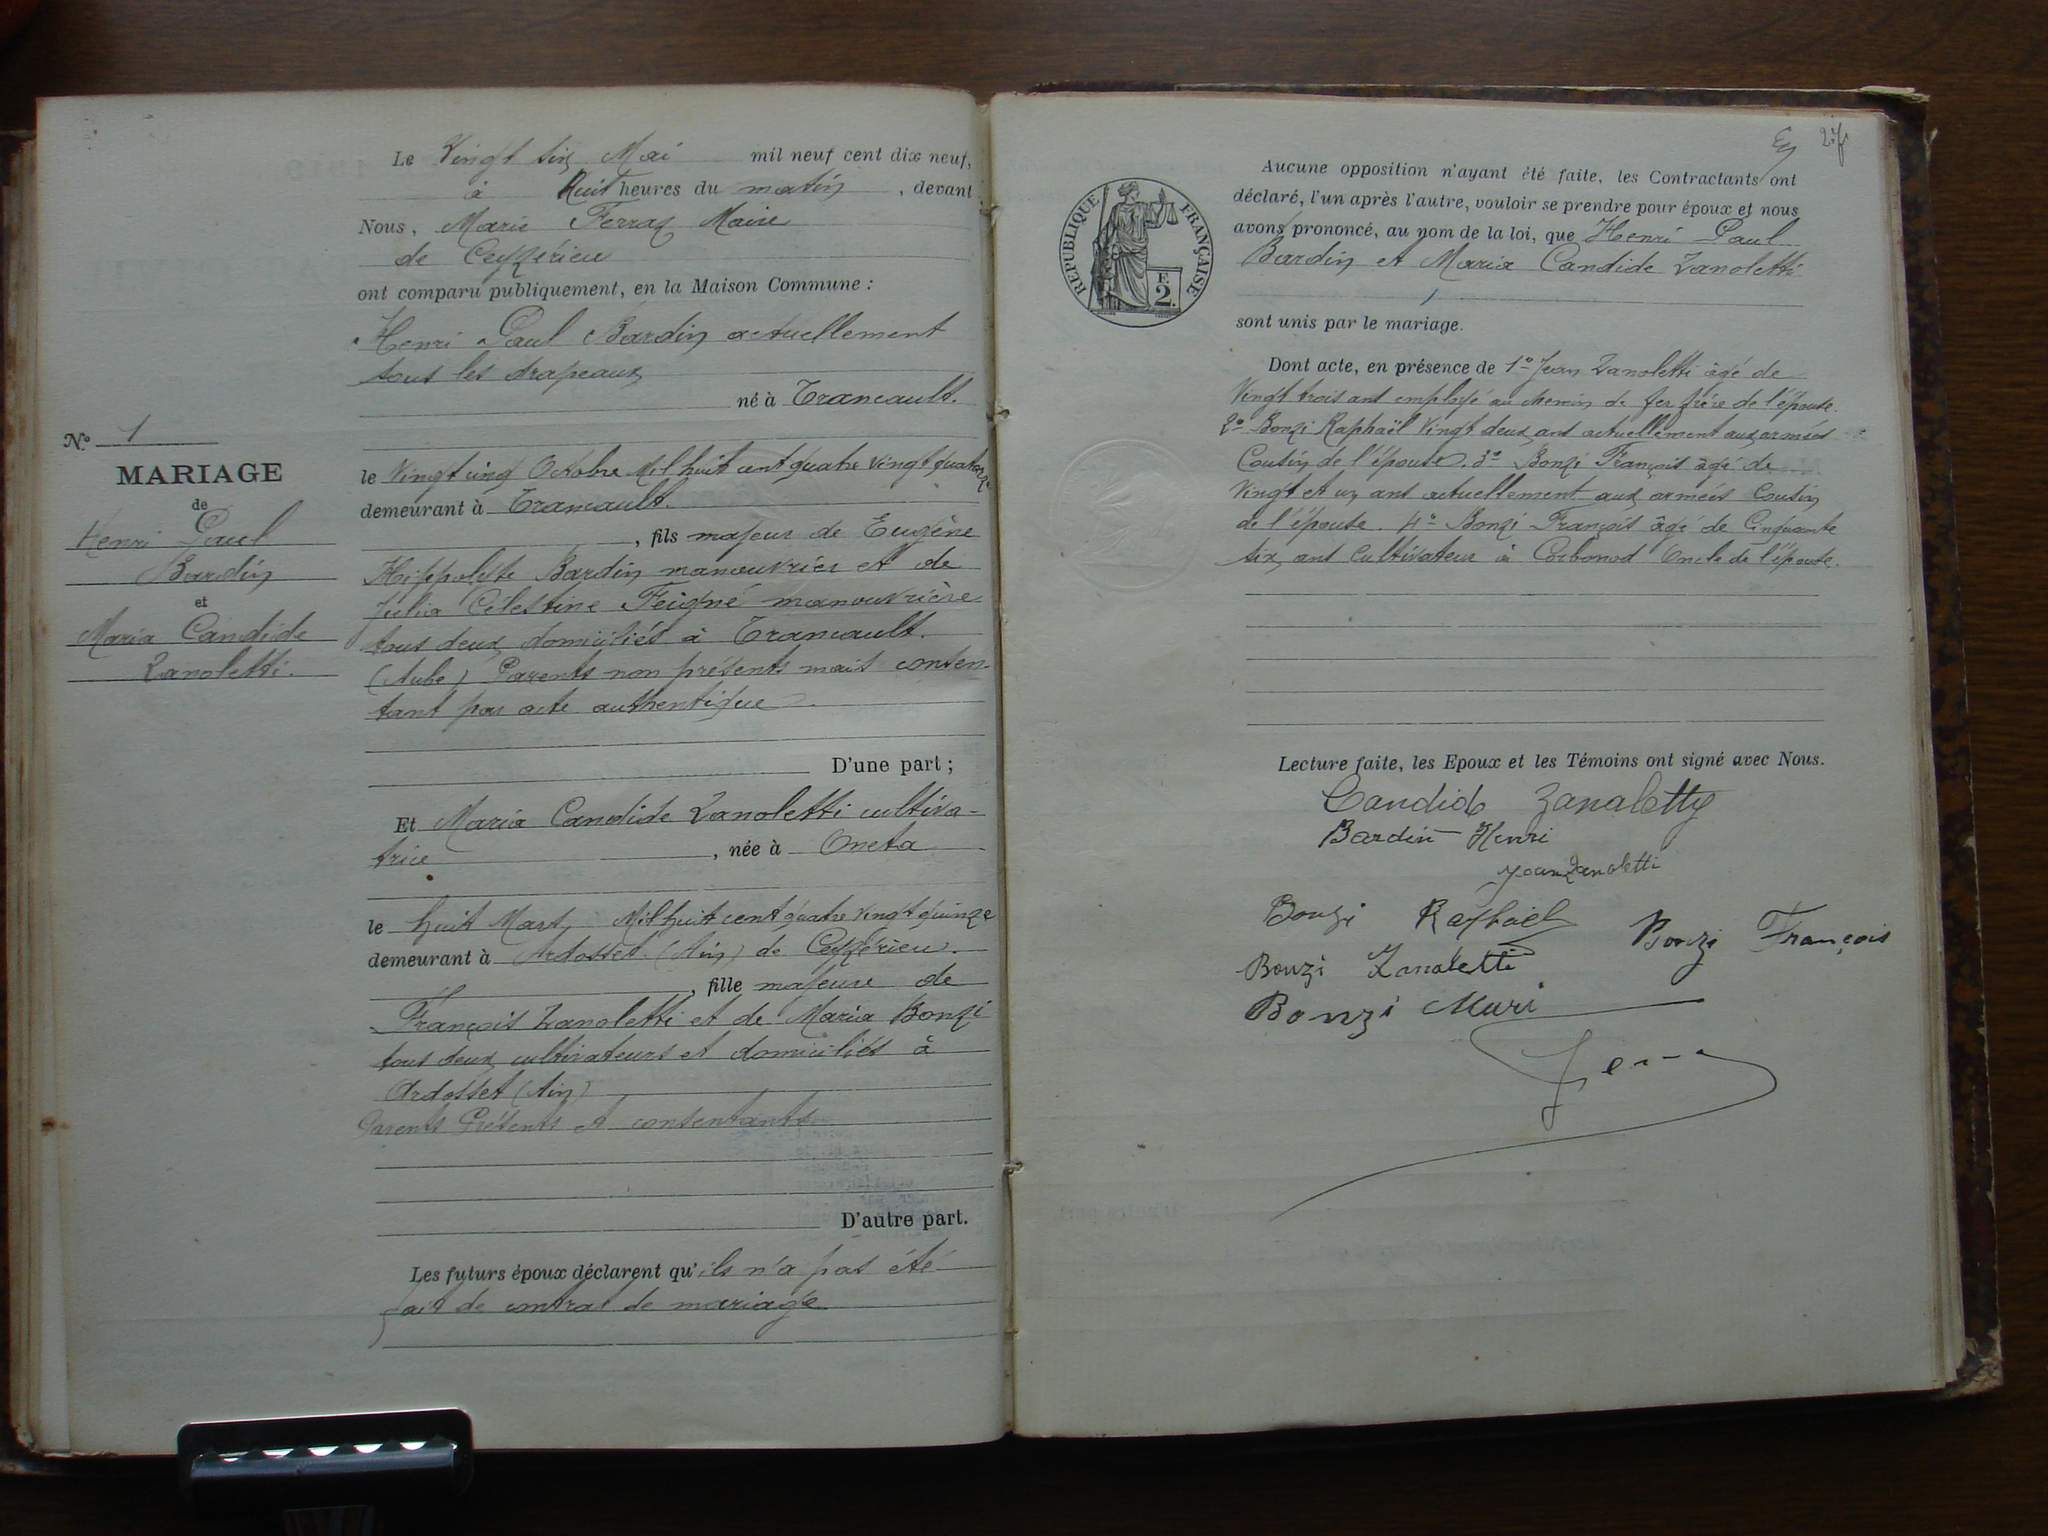 Le Vingt six Mai mil neuf cent dix neuf,
à Huit heures du matin, devant
Nous, Marie Ferraz Maire
de Ceyzérieu
ont comparu publiquement, en la Maison Commune :
Henri Paul Bardin actuellement
sous les drapeaux
né à Trancault.
le Vingt cinq Octobre Mil huit cent quatre vingt quatorze
demeurant à Trancault.
, fils majeur de Eugène
Hippolyte Bardin manouvrier et de
Julia Célestine Feigné manouvrière
tous deux domiciliés à Trancault.
(Aube) Parents non présents mais consen-
tant par acte authentique
D'une part ;
Et Maria Candide Zanoletti cultiva-
trice, née à Oneta
le huit Mars Mil huit cent quatre vingt quinze
demeurant à Ardosset (Ain) de Ceyzérieu.
, fille majeure de
François Zanoletti et de Maria Bonzi
tous deux cultivateurs et domiciliés à
Ardosset (Ain)
Parents Présents et consentants
D'autre part.
Les futurs époux déclarent qu'ils n'a pas été
fait de contrat de mariage
N° 1
MARIAGE
de
Henri Paul
Bardin
et
Maria Candide
Zanoletti.
27
RÉPUBLIQUE FRANÇAISE
F.
2.
Aucune opposition n'ayant été faite, les Contractants ont
déclaré, l'un après l'autre, vouloir se prendre pour époux et nous
avons prononcé, au nom de la loi, que Henri Paul
Bardin et Maria Candide Zanoletti
sont unis par le mariage.
Dont acte, en présence de 1° Jean Zanoletti âgé de
Vingt trois ans employé au chemin de fer frère de l'épouse.
2° Bonzi Raphaël Vingt deux ans actuellement aux armées
Cousin de l'épouse. 3° Bonzi François âgé de
Vingt et un ans actuellement aux armées Cousin
de l'épouse. 4° Bonzi François âgé de Cinquante
six ans Cultivateur à Corbonod Oncle de l'épouse.
Lecture faite, les Epoux et les Témoins ont signé avec Nous.
Candide Zanaletty
Bardin Henri
Jean Zanoletti
Bonzi Raphaël
Bonzi François
Bonzi Zanaletti
Bonzi Muri